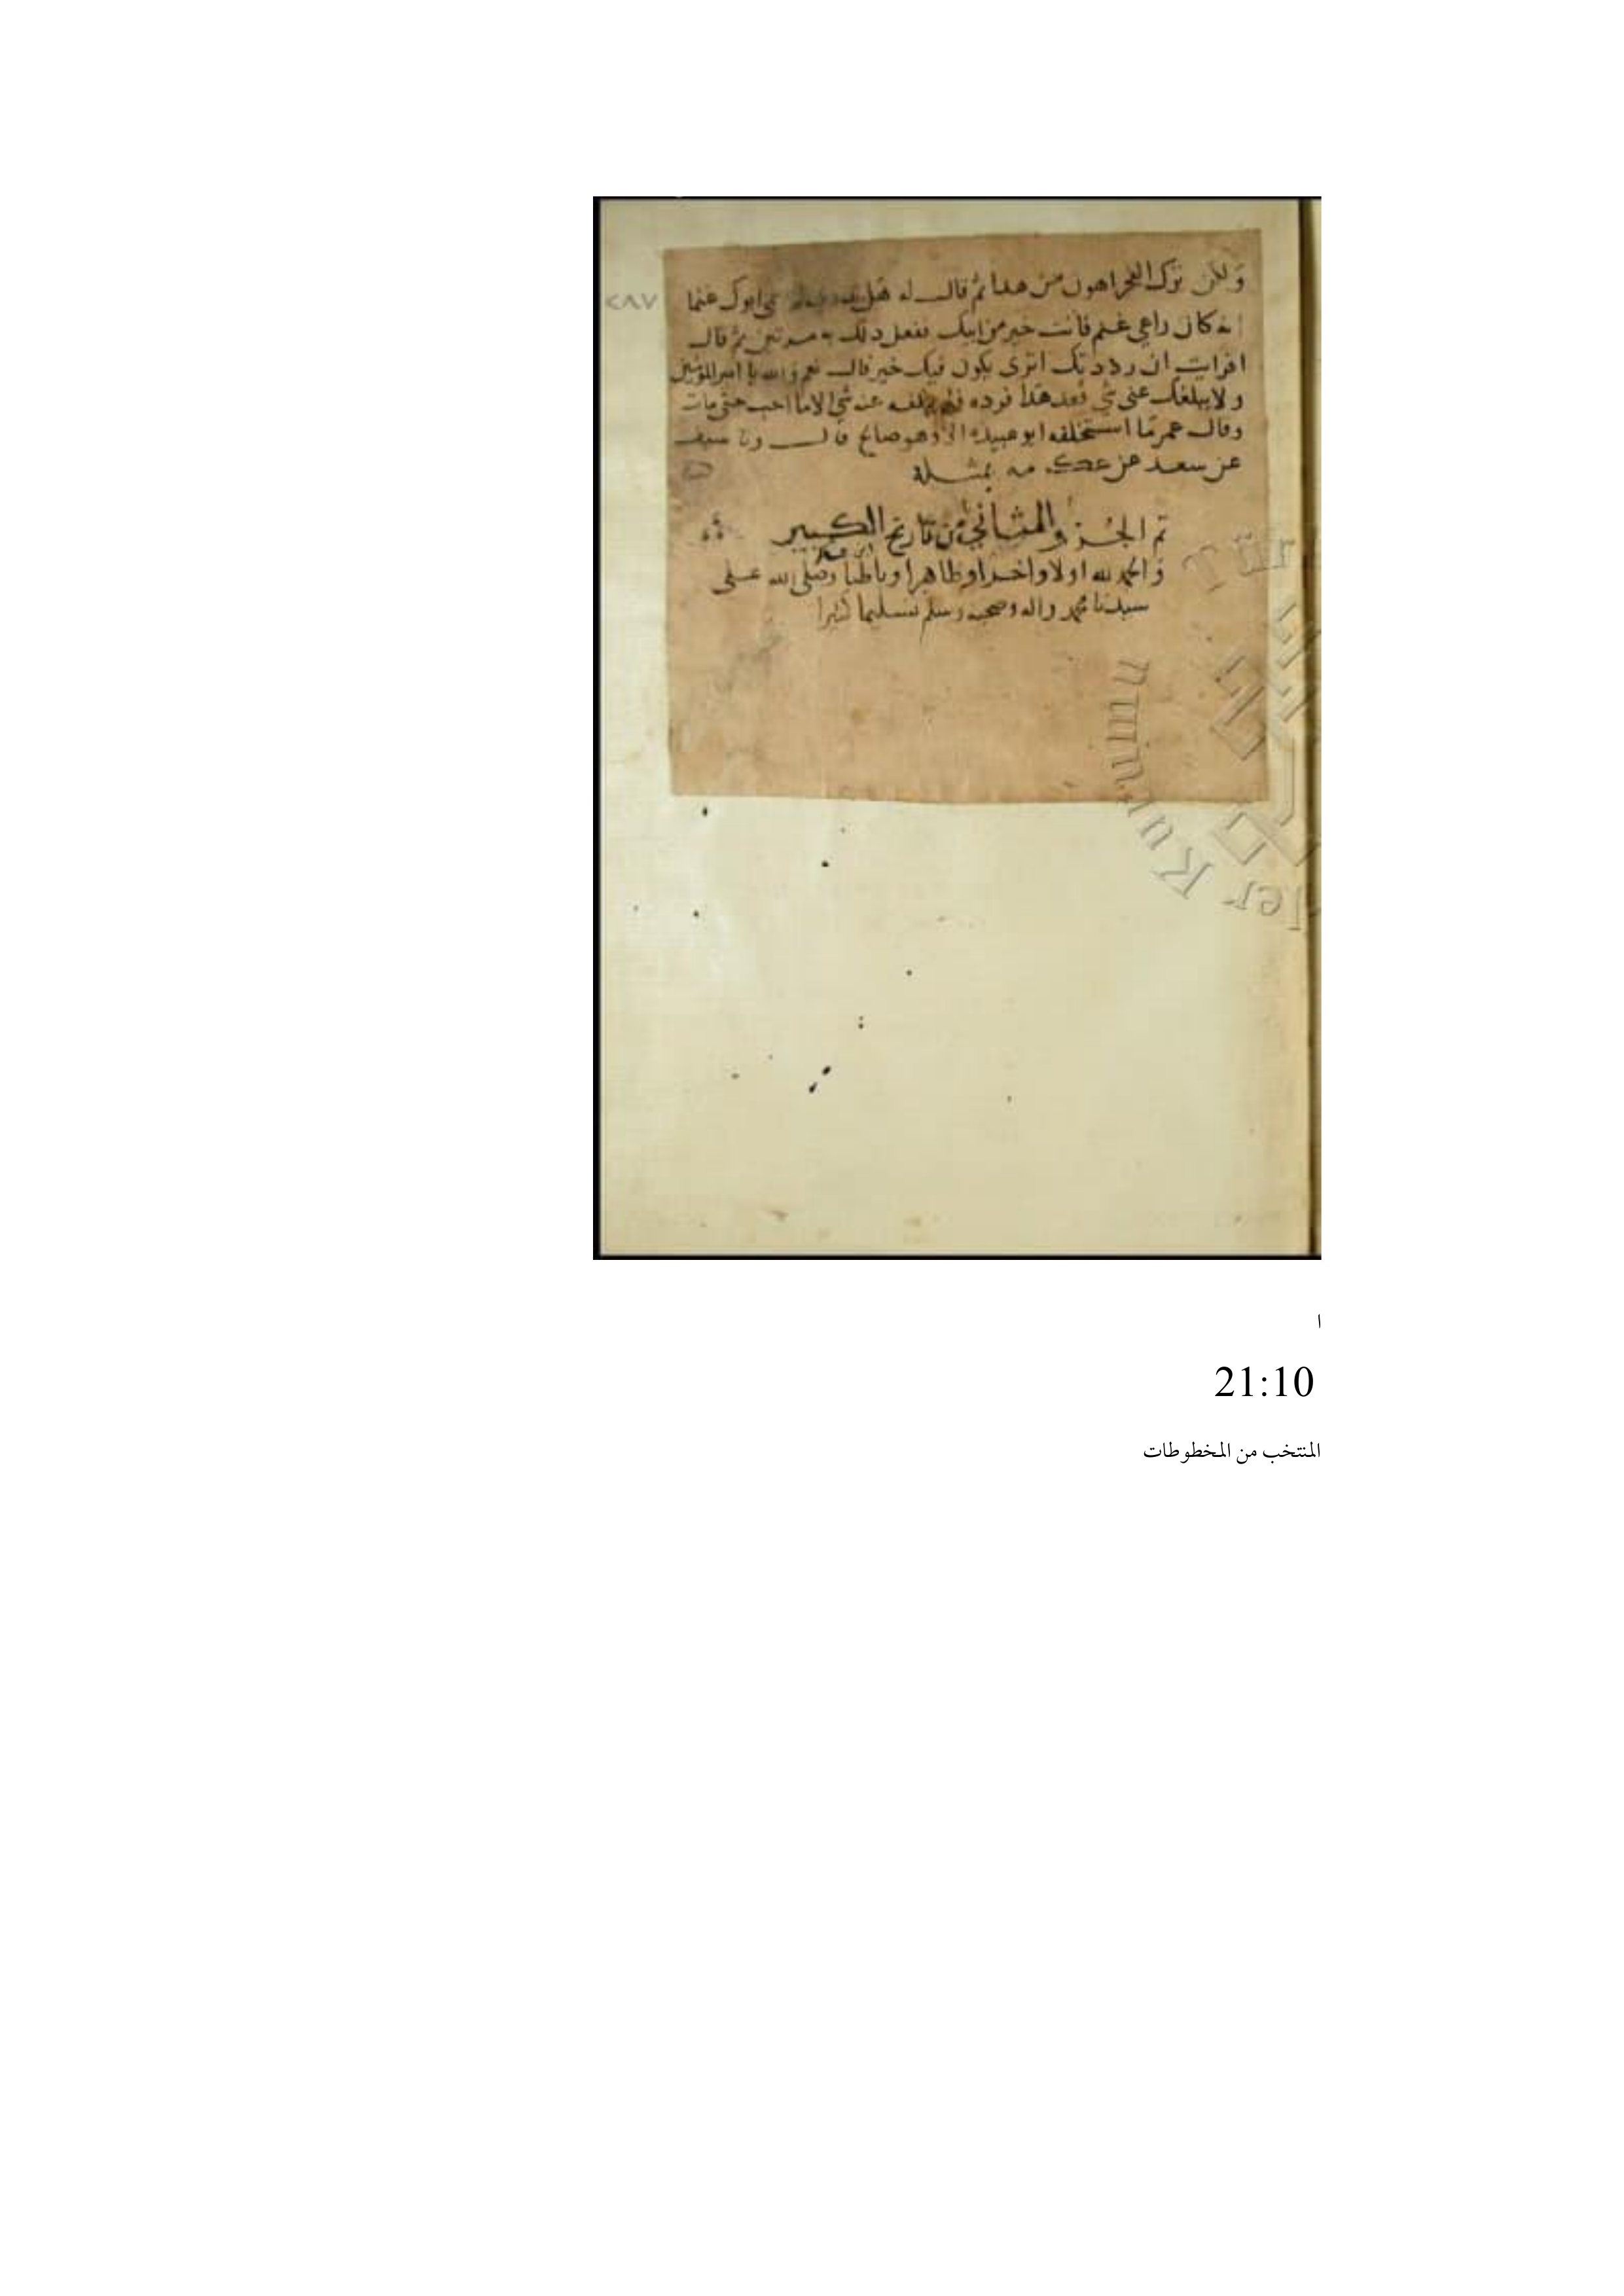 ولكن ترك الفخر اهون من هذا ثم قال له هل ابوك غنما
انه كان راعي غنم فانت خير من ابيك ففعل ذلك به مرتين ثم قال
افرايت ان رددتك اترى يكون فيك خير قال نعم والله يا امير المؤمنين
ولا يبلغك عني شي بعد هذا فرده فلم يبلغه عنه شي الا ما احب حتى مات
وقال عمر ما استخلفه ابو عبيدة الا وهو صالح قال ونا سيف
عن سعد عن بمثله
تم الجزو الثاني من تاريخ الكبير
والحمد لله اولا واخرا وظاهرا وباطنا وصلى الله على
سيدنا محمد واله وصحبه وسلم تسليما كثيرا
٢٨٧
der Kunuinun
ا
21:10
المنتخب من المخطوطات